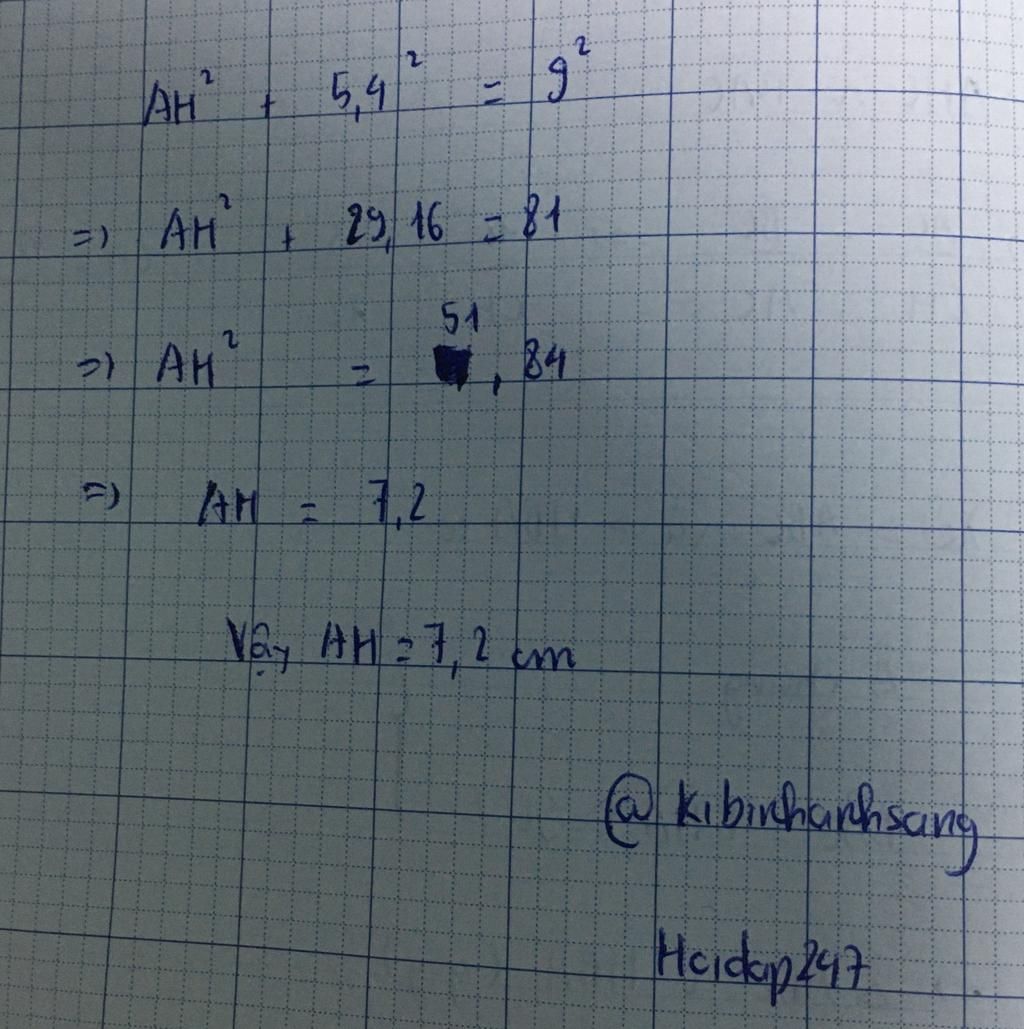 AH² + 5,4² = 9²
=) AH² + 29,16 = 81
=) AH² = 51,84
=) AH = 7,2
Vậy AH = 7,2 cm
@ kibinhanhsang
Hoidap247